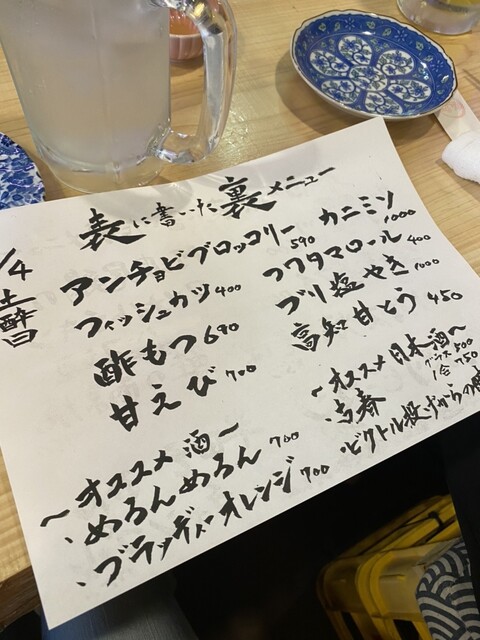 表に書いた裏メニュー
アンチョビブロッコリー 590
フィッシュカツ 400
酢もつ 690
甘えび 700
カニミソ 1000
フワタマロール 400
ブリ塩やき 1000
高知甘とう 450
〜オススメ酒〜
・めろんめろん 700
・ブラッディオレンジ 700
〜オススメ日本酒〜
グラス 500
1合 750
ビクトル投げからの
/4